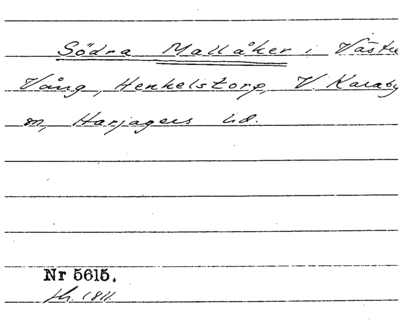 Södra Mallåker i Västra
Vång, Henkelstorp, V. Karaby
sn, Harjagers hd.
Nr 5615.
1811.